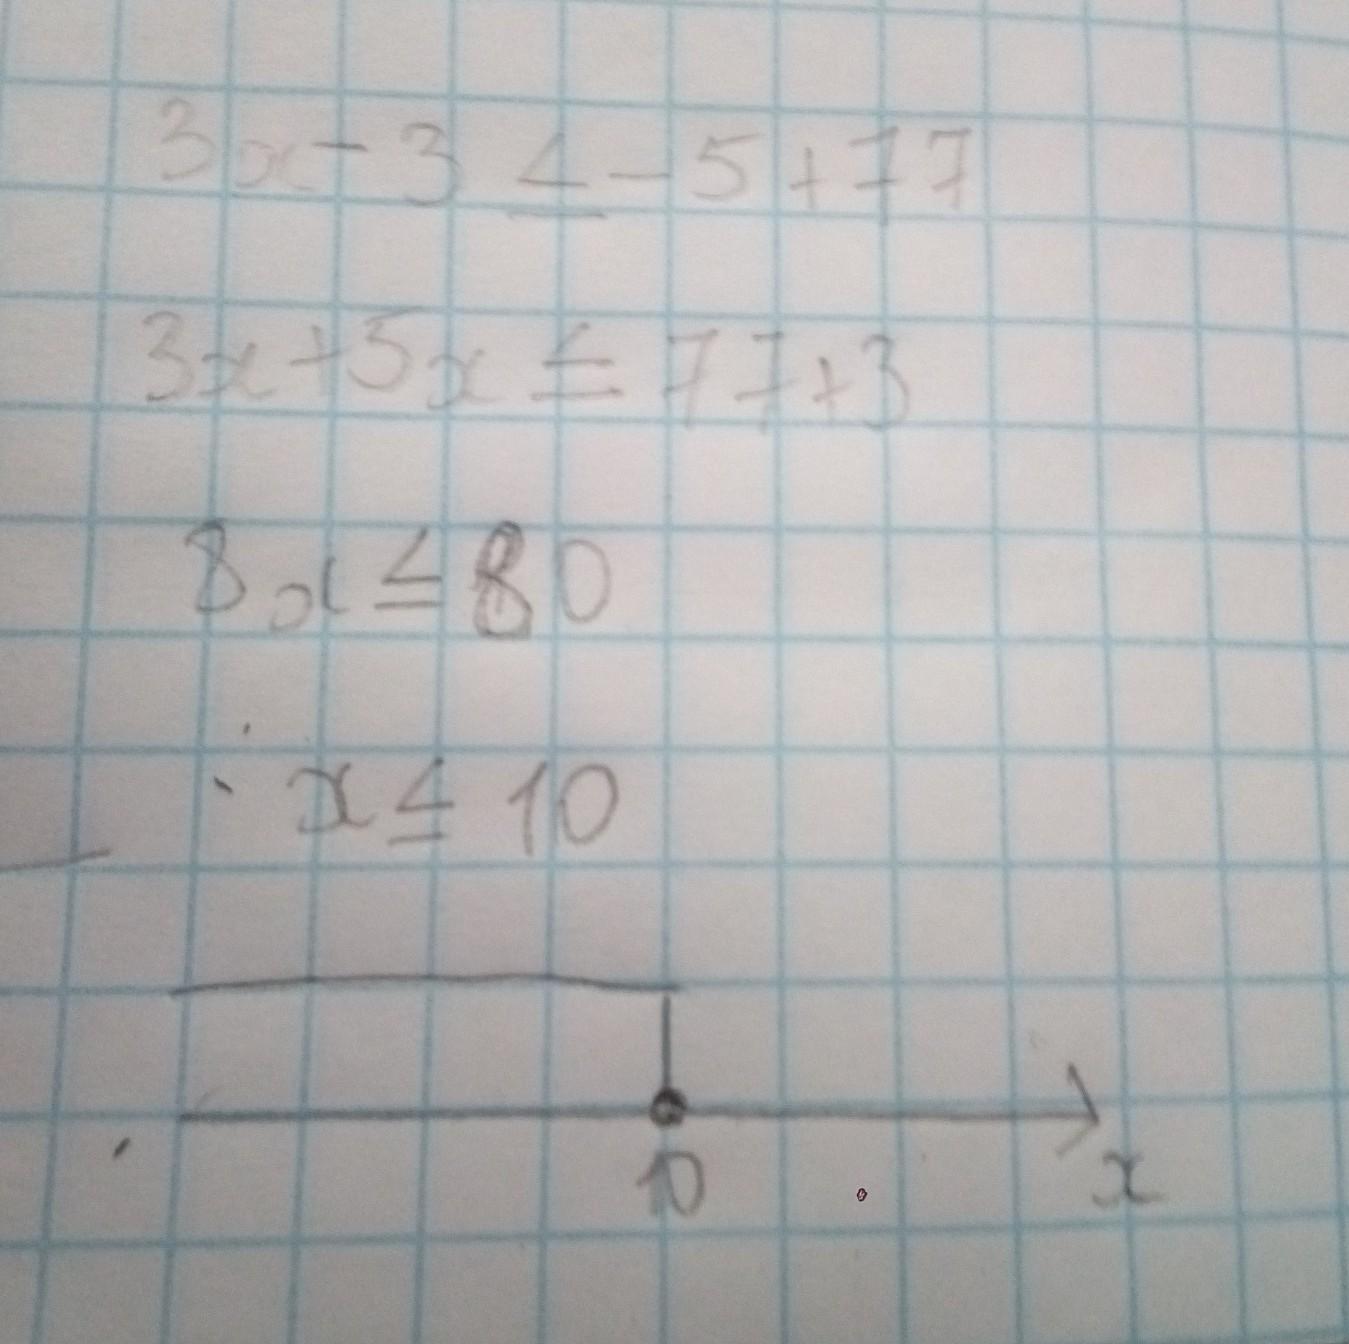 3x-3≤-5+77
3x+5x≤77+3
8x≤80
x≤10
10
x